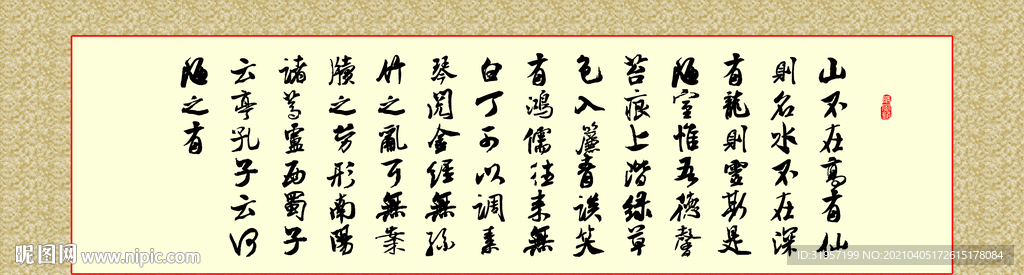 山不在高有仙
則名水不在深
有龍則靈斯是
陋室惟吾德馨
苔痕上階綠草
色入簾青談笑
有鴻儒往來無
白丁可以調素
琴閱金經無絲
竹之亂耳無案
牘之勞形南陽
諸葛廬西蜀子
云亭孔子云何
陋之有
昵图网 www.nipic.com
ID:31957199 NO:20210405172615178084